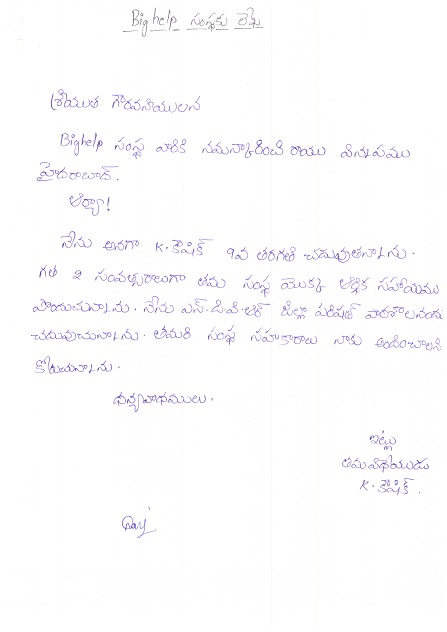 Bighelp సంస్థకు లేఖ
శ్రీయుత గౌరవనీయులన
Bighelp సంస్థ వారికి నమస్కారించి రాయు విన్నపము
హైదరాబాద్.
ఆర్యా!
నేను అనగా K. కౌషిక్ 9వ తరగతి చదువుతున్నాను.
గత 2 సంవత్సరాలుగా తమ సంస్థ యొక్క ఆర్థిక సహాయము
పొందుచున్నాను. నేను ఎన్.డి.వి.ఆర్ జిల్లా పరిషత్ పాఠశాలనందు
చదువుచున్నాను. తమరి సంస్థ సహాకారాలు నాకు అందించాలని
కోరుచున్నాను.
ధన్యవాధములు.
ఇట్లు
తమ విధేయుడు
K. కౌషిక్.